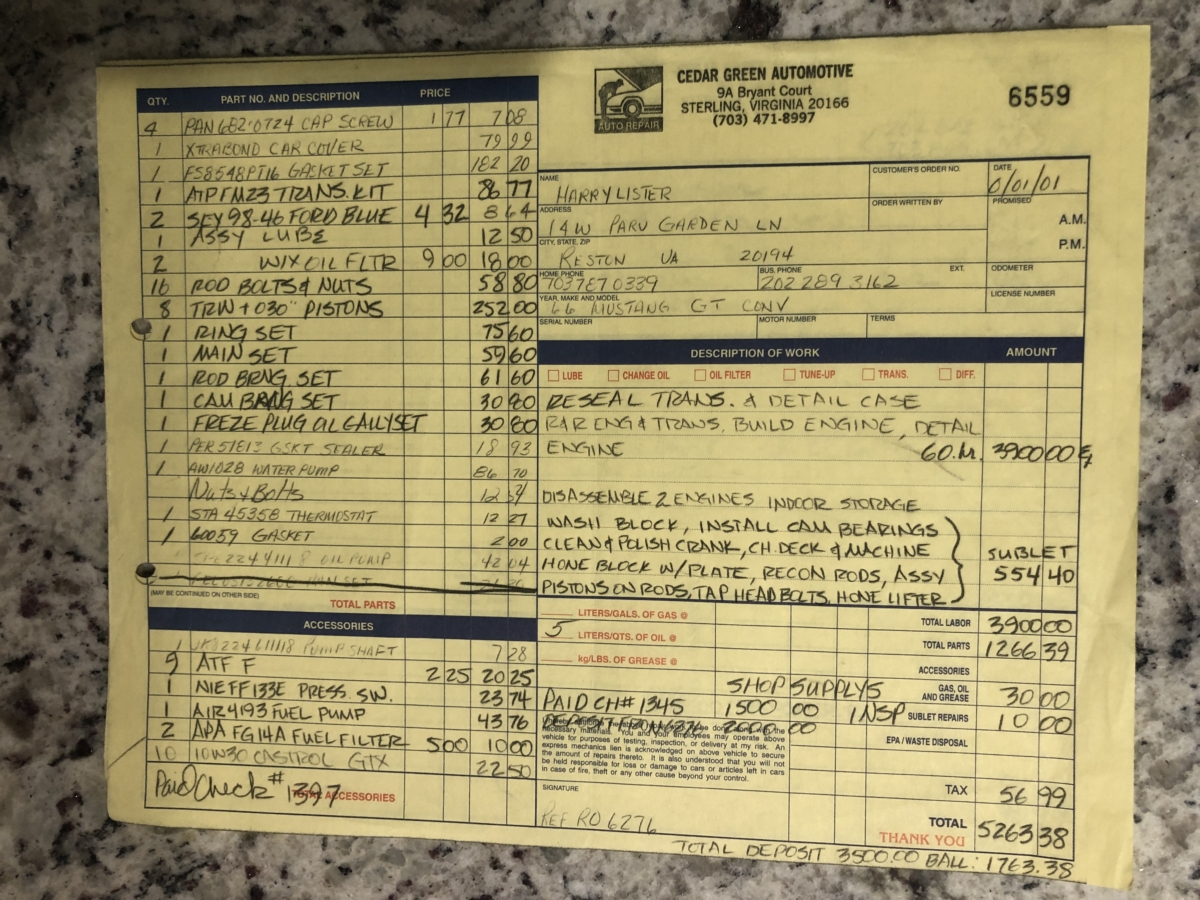 CEDAR GREEN AUTOMOTIVE
9A Bryant Court
STERLING, VIRGINIA 20166
(703) 471-8997
AUTO REPAIR
6559
QTY. PART NO. AND DESCRIPTION PRICE
4 PAN 682-0724 CAP SCREW 1 77 7 08
1 XTRABOND CAR COVER 79 99
1 FS8548PT16 GASKET SET 182 20
1 ATP FM23 TRANS. KIT 86 77
2 98-46 FORD BLUE 4 32 8 64
1 ASSY LUBE 12 50
2 WIX OIL FLTR 9 00 18 00
16 ROD BOLTS & NUTS 58 80
8 TRW +030" PISTONS 252 00
1 RING SET 75 60
1 MAIN SET 59 60
1 ROD BRNG. SET 61 60
1 CAM BRNG SET 30 80
1 FREZE PLUG OIL GALLY SET 30 80
1 PER 51813 GSKT SEALER 18 93
1 AW1028 WATER PUMP 86 70
Nuts & Bolts 12
1 STA 45358 THERMOSTAT 12 27
1 60059 GASKET 2 00
OIL PUMP 42 04
(MAY BE CONTINUED ON OTHER SIDE)
TOTAL PARTS
ACCESSORIES
1 PUMP SHAFT 7 28
9 ATF F 2 25 20 25
1 NIEFF 133E PRESS. SW. 23 74
1 AIR 4193 FUEL PUMP 43 76
2 APA FG14A FUEL FILTER 5 00 10 00
10 10W30 CASTROL GTX 22 50
Paid Check # 1397
TOTAL ACCESSORIES
NAME HARRY LISTER
CUSTOMER'S ORDER NO.
DATE 0/01/01
ADDRESS 14W PARU GARDEN LN
ORDER WRITTEN BY
PROMISED A.M.
P.M.
CITY, STATE, ZIP RESTON VA 20194
HOME PHONE 703 787 0339
BUS. PHONE 202 289 3162 EXT.
ODOMETER
YEAR, MAKE AND MODEL 66 MUSTANG GT CONV
LICENSE NUMBER
SERIAL NUMBER MOTOR NUMBER TERMS
DESCRIPTION OF WORK AMOUNT
LUBE CHANGE OIL OIL FILTER TUNE-UP TRANS. DIFF.
RESEAL TRANS. & DETAIL CASE
R&R ENG & TRANS. BUILD ENGINE, DETAIL
ENGINE 60.hr. 3900 00
DISASSEMBLE 2 ENGINES INDOOR STORAGE
WASH BLOCK, INSTALL CAM BEARINGS
CLEAN & POLISH CRANK, CH. DECK & MACHINE SUBLET
HONE BLOCK W/PLATE, RECON RODS, ASSY 554 40
PISTONS ON RODS, TAP HEAD BOLTS, HONE LIFTER
LITERS/GALS. OF GAS @
TOTAL LABOR 3900 00
5 LITERS/QTS. OF OIL @
TOTAL PARTS 1266 39
kg/LBS. OF GREASE @
ACCESSORIES
SHOP SUPPLYS GAS, OIL AND GREASE 30 00
PAID CH# 1345 1500 00 INSP SUBLET REPAIRS 10 00
2000 00
EPA / WASTE DISPOSAL
necessary materials. You and your employees may operate above
vehicle for purposes of testing, inspection, or delivery at my risk. An
express mechanics lien is acknowledged on above vehicle to secure
the amount of repairs thereto. It is also understood that you will not
be held responsible for loss or damage to cars or articles left in cars
in case of fire, theft or any other cause beyond your control.
SIGNATURE
TAX 56 99
REF RO 6276
THANK YOU
TOTAL 5263 38
TOTAL DEPOSIT 3500.00 BALL: 1763.38